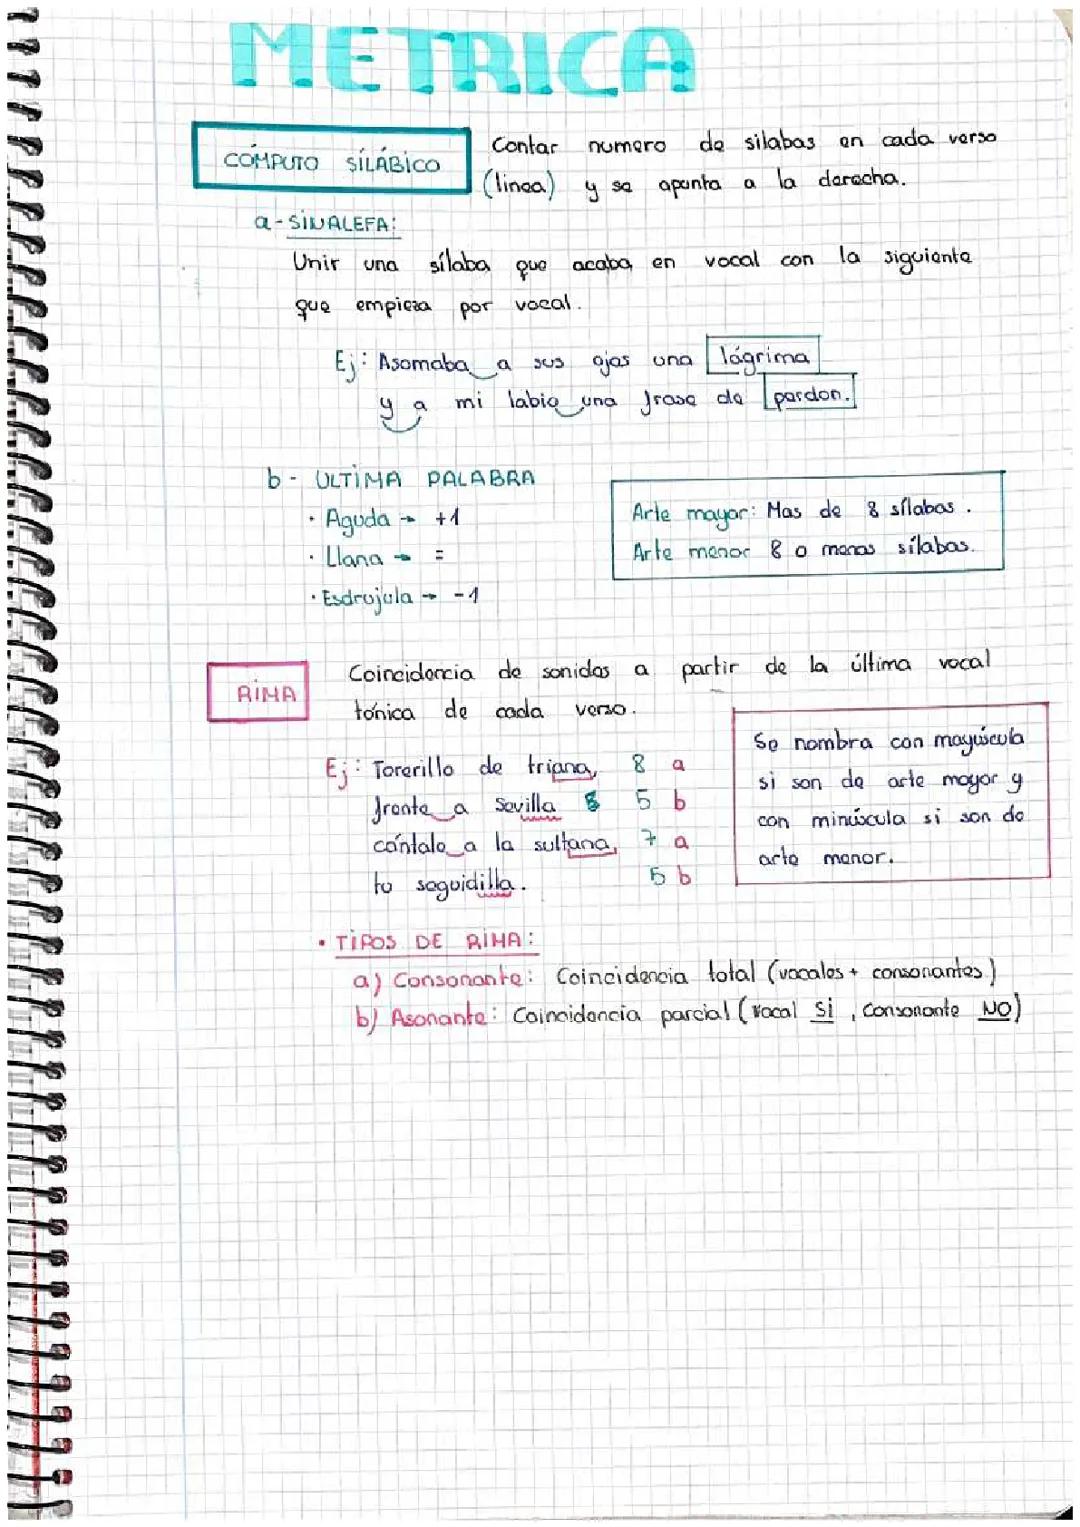 METRICA
CÓMPUTO SÍLÁBICO
Contar numero de silabas en cada verso
(linea) y se apunta a la derecha.
a - SINALEFA:
Unir una sílaba que acaba en vocal con la siguiente
que empieza por vocal.
Ej: Asomaba a sus ojos una lágrima
y a mi labio una frase de perdon.
b - ULTIMA PALABRA
· Aguda → +1
· Llana → =
· Esdrujula → -1
Arte mayor: Mas de 8 sílabas.
Arte menor 8 o menos sílabas.
RIMA
Coincidencia de sonidos a partir de la última vocal
tónica de cada verso.
Ej: Torerillo de triana, 8 a
frente a Sevilla 5 b
cántale a la sultana, 7 a
tu seguidilla. 5 b
Se nombra con mayúscula
si son de arte mayor y
con minúscula si son de
arte menor.
• TIPOS DE RIMA:
a) Consonante: Coincidencia total (vocales + consonantes)
b) Asonante: Coincidencia parcial (vocal SI, consonante NO)